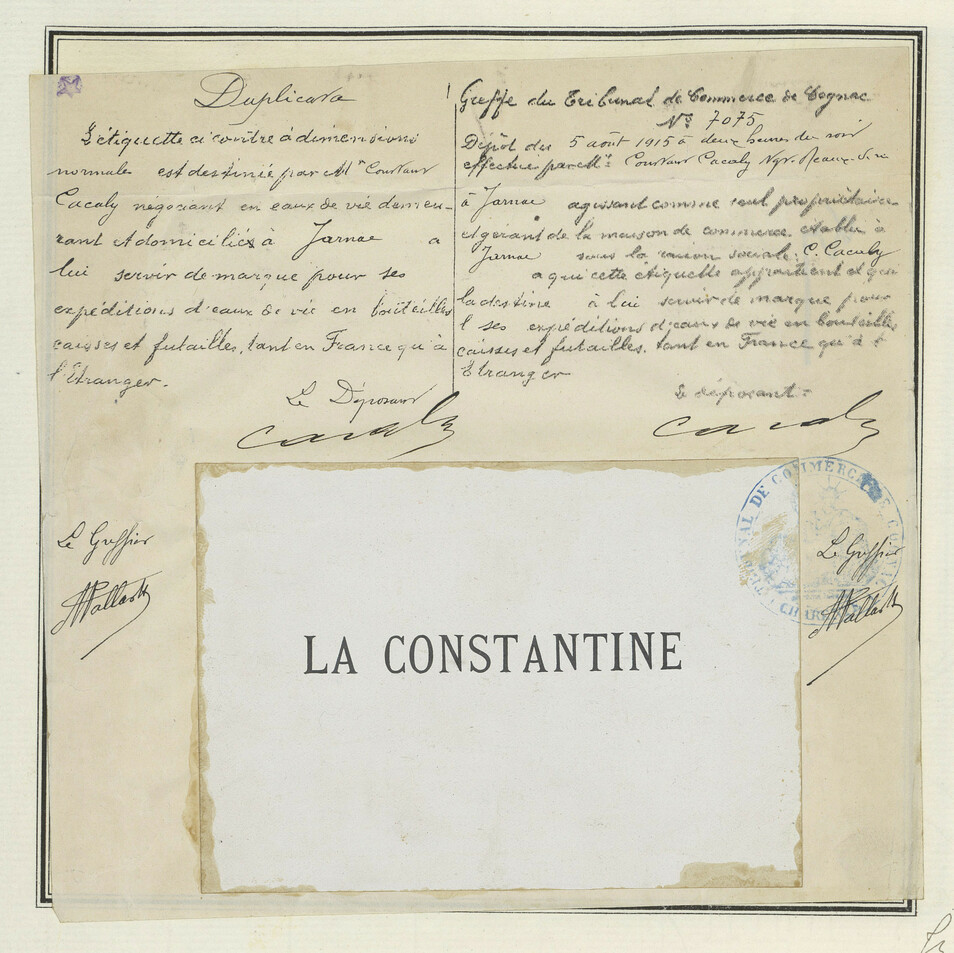 Duplicata
L'étiquette ci contre à dimensions
normales est destinée par Mr Constant
Cacaly négociant en eaux de vie demeu-
rant et domicilié à Jarnac a
lui servir de marque pour ses
expéditions d'eaux de vie en bouteilles
caisses et futailles, tant en France qu'à
l'Etranger.
Le Déposant
Cacaly
Greffe du Tribunal de Commerce de Cognac
No 7075
Dépôt du 5 août 1915 à deux heures du soir
effectué par Mr Constant Cacaly Ngt. eaux de vie
à Jarnac agissant comme seul propriétaire
et gérant de la maison de commerce établie à
Jarnac sous la raison sociale: C. Cacaly
à qui cette etiquette appartient et qui
la destine à lui servir de marque pour
ses expéditions d'eaux de vie en bouteilles
caisses et futailles, tant en France qu'à l'
Etranger
Le déposant =
Cacaly
Le Greffier
Le Greffier
TRIBUNAL DE COMMERCE DE COGNAC
LA CONSTANTINE